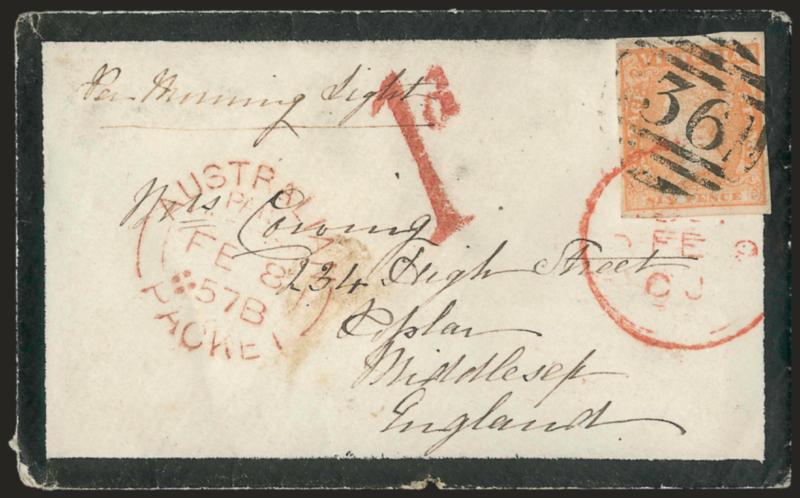 Per Morning Light
1d
VICTORIA
36
SIX PENCE
AUSTRALIAN
FE 8
57B
PACKET
FE 9
Mrs Cowing
234 High Street
Poplar
Middlesex
England